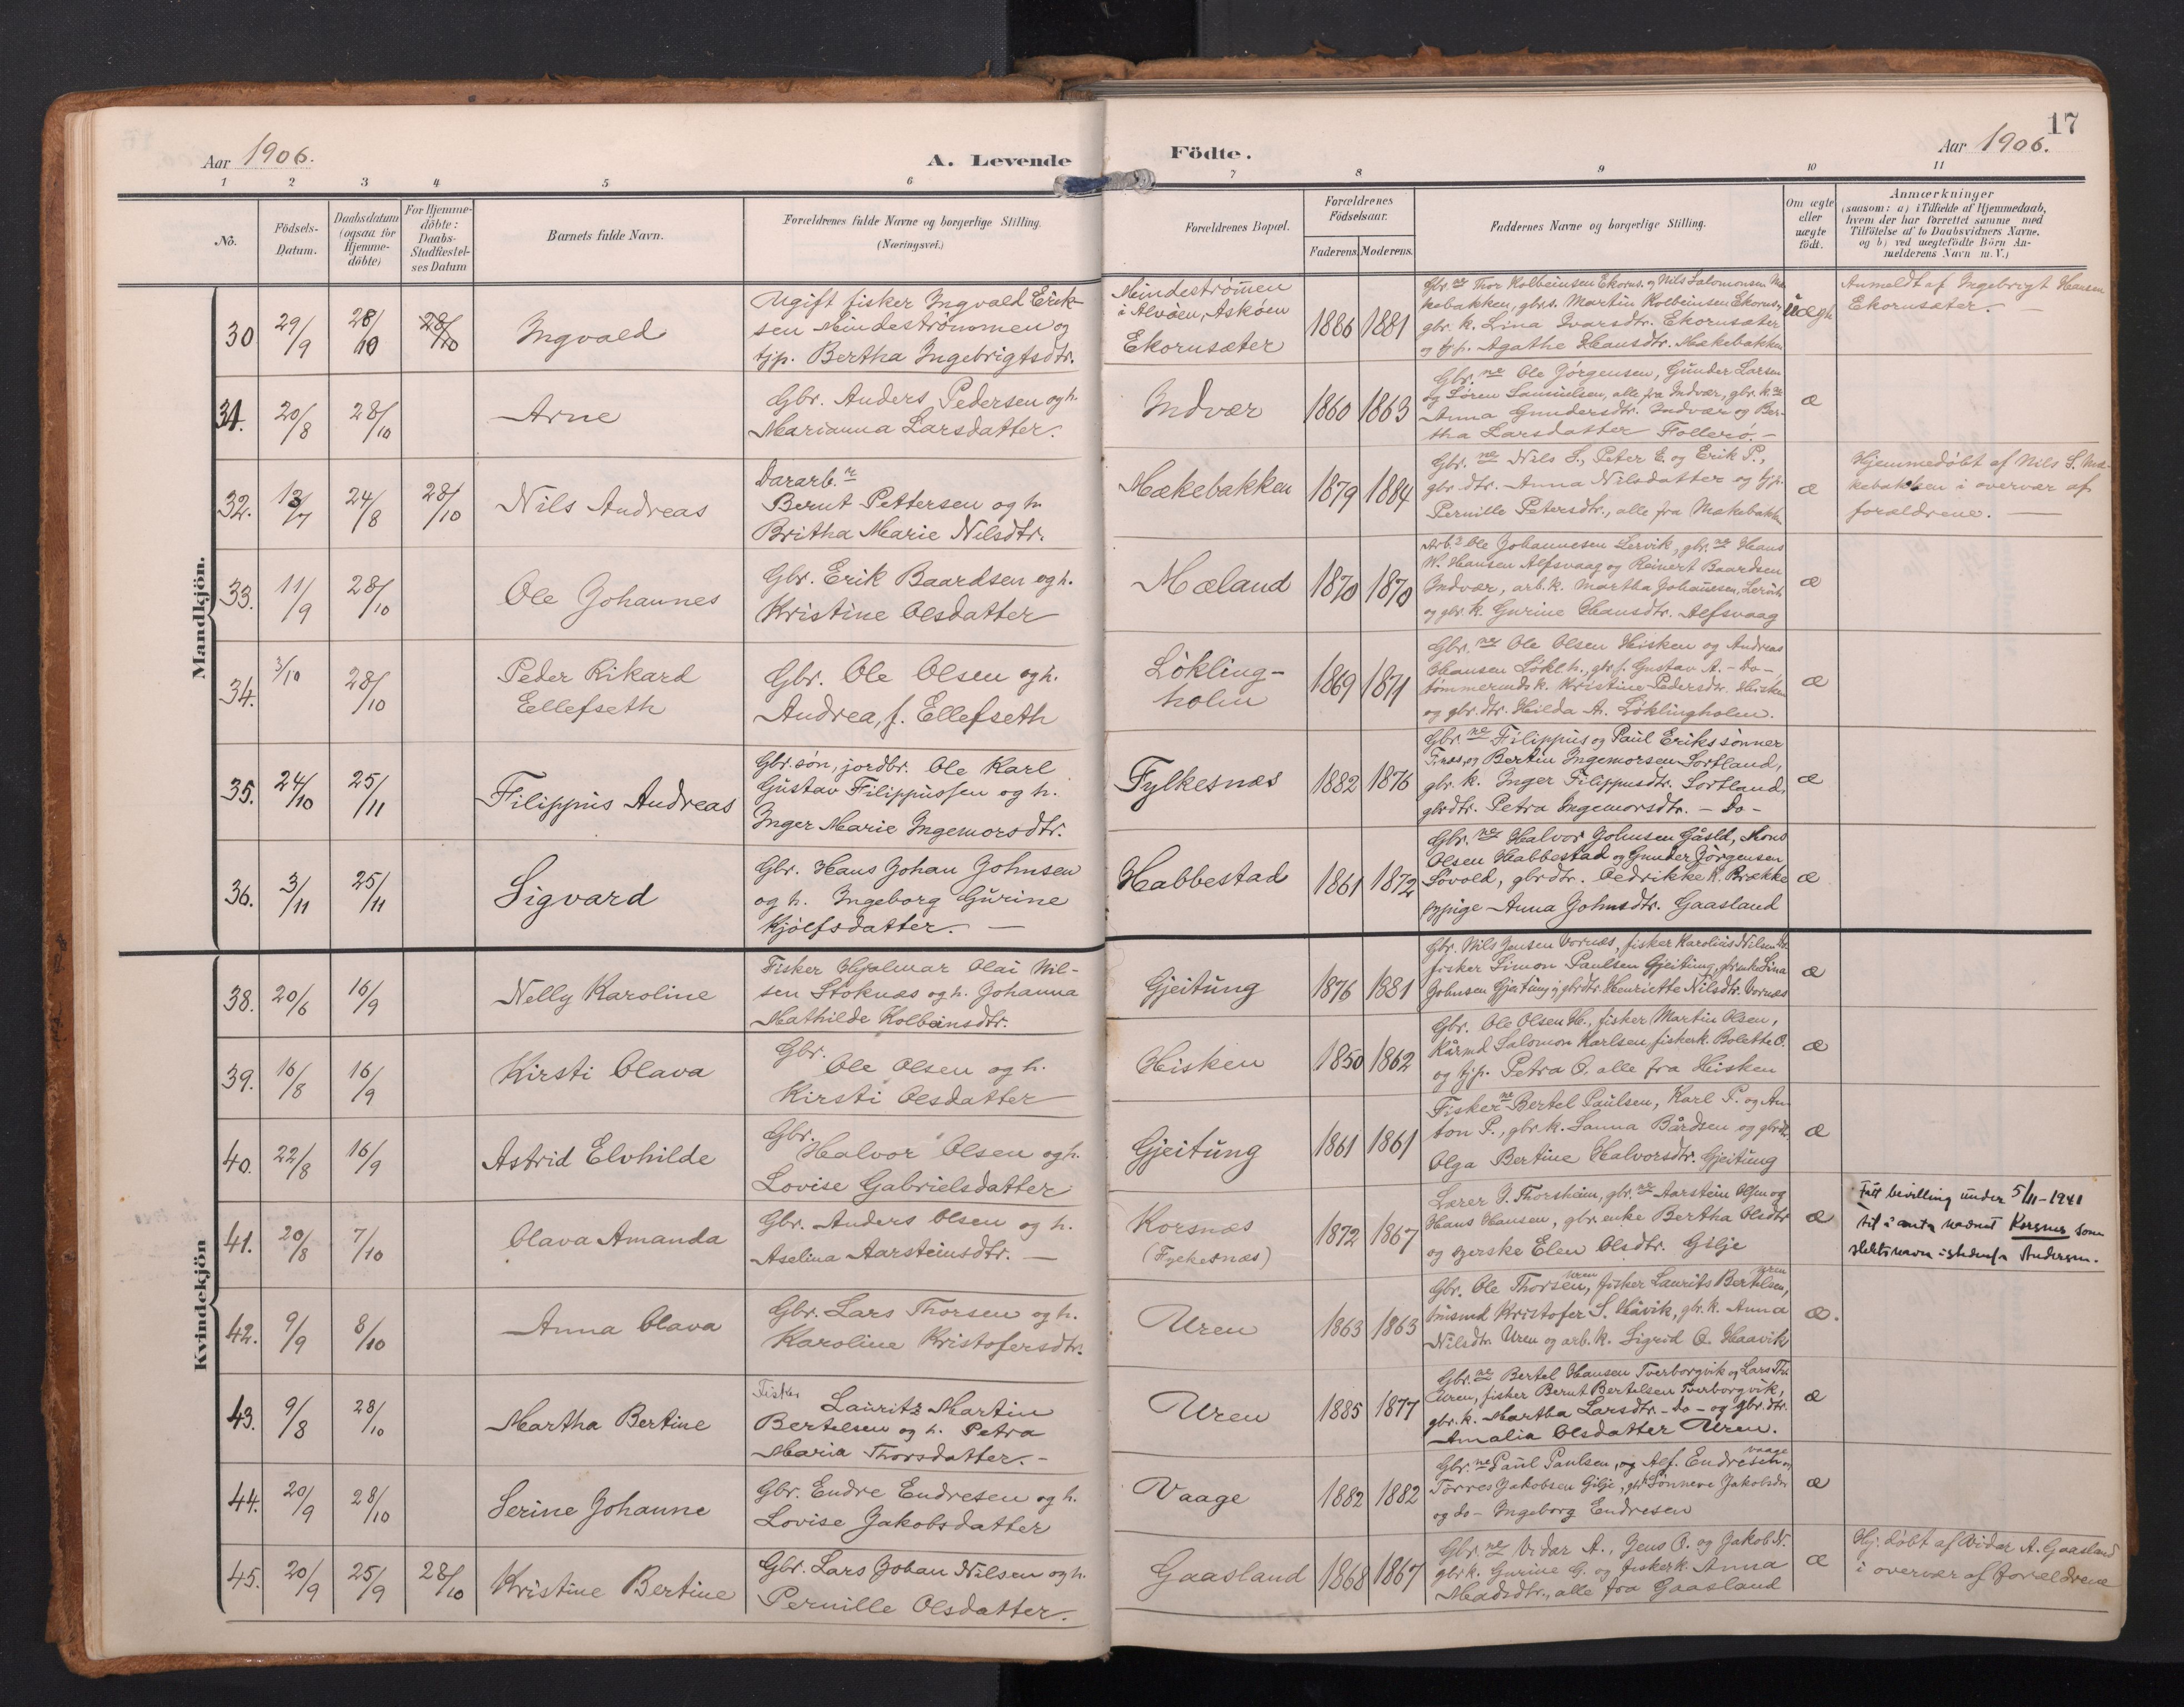 17
Aar 1906.
A. Levende
Födte.
Aar 1906.
1 2 3 4 5 6 7 8 9 10 11
No.
Födsels-
Datum.
Daabsdatum
(ogsaa for
Hjemme-
döbte)
For Hjemme-
döbte:
Daabs-
Stadfæstel-
ses Datum
Barnets fulde Navn.
Forældrenes fulde Navne og borgerlige Stilling.
(Næringsvei.)
Forældrenes Bopæl.
Forældrenes
Födselsaar.
Faderens. Moderens.
Faddernes Navne og borgerlige Stilling.
Om ægte
eller
uægte
födt.
Anmærkninger
(saasom: a) i Tilfælde af Hjemmedaab,
hvem der har forrettet samme med
Tilföielse af to Daabsvidners Navne,
og b) ved uægtefödte Börn An-
melderens Navn m. V.)
Mandkjön.
30 29/9 28/10 28/10 Ingvald
Ugift fisker Ingvald Erik-
sen Mindeströmmen og
tjp. Bertha Ingebrigtsdtr.
Mindeströmen
i Alvöen, Asköen
Ekornsæter
1886 1881
Gbr.ne Thor Kolbeinsen Ekorns. og Nils Salomonsen Mæ-
kebakken, gbrs. Martin Kolbeinsen Ekorns.,
gbr. k. Lina Ivarsdtr. Ekornsæter
og tjp. Agathe Hansdtr. Mækebakken
Uægte
Anmeldt af Ingebrigt Hansen
Ekornsæter. —
31. 20/8 28/10 Arne
Gbr. Anders Pedersen og h.
Marianna Larsdatter.
Indvær
1860 1863
Gbr.ne Ole Jörgensen, Gunder Larsen
og Sören Samuelsen, alle fra Indvær, gbr. k.ne
Anna Gundersdtr. Indvær og Ber-
tha Larsdatter Folleró. –
æ
32. 13/7 24/8 28/10 Nils Andreas
Dararb.r
Bernt Pettersen og h.
Britha Marie Nilsdtr.
Mækebakken
1879 1884
Gbr.ne Nils S., Peter E. og Erik P.,
gbr. dtr. Anna Nilsdatter og tjp.
Pernille Petersdtr., alle fra Mækebakken
æ
Hjemmedöbt af Nils S. Mæ-
kebakken i overvær af
forældrene. —
33. 11/9 28/10 Ole Johannes
Gbr. Erik Baardsen og h.
Kristine Olsdatter
Mæland
1870 1870
Arb.r Ole Johannesen Lervik, gbr.ne Hans
W. Hansen Alfsvaag og Reinert Baardsen
Indvær, arb. k. Martha Johannesen, Lervik
og gbr. k. Gurine Hansdtr. Alfsvaag
æ
34. 3/10 28/10 Peder Rikard
Ellefseth
Gbr. Ole Olsen og h.
Andrea, f. Ellefseth
Lökling-
holm
1869 1871
Gbr.ne Ole Olsen Hisken og Andreas
Hansen Lökl.h., gbr. s. Gustav A. – Do –
tömmermds k. Kristine Pedersdtr. Hisken
og gbr. dtr. Hilda A. Löklingholm.
æ
35. 24/10 25/11 Filippus Andreas
Gbr. sön, jordbr. Ole Karl
Gustav Filippussen og h.
Inger Marie Ingemorsdtr.
Fylkesnæs
1882 1876
Gbr.ne Filippus og Paul Erikssönner
F.næs, og Bertin Ingemorsen Sortland,
gbr. k. Inger Filippusdtr. Sortland,
gbrdtr. Petra Ingemorsdtr. – Do –
æ
36. 3/11 25/11 Sigvard
Gbr. Hans Johan Johnsen
og h. Ingeborg Gurine
Kjölfsdatter. —
Habbestad
1861 1872
Gbr.ne Halvor Johnsen Gåsld, Mons
Olsen Habbestad og Gunder Jörgensen
Lövold, gbrdtr. Oedrikke K. Brække
sypige Anna Johnsdtr. Gaasland
æ
Kvindekjön
38. 20/6 16/9 Nelly Karoline
Fisker Hjalmar Olai Nil-
sen Stoknæs og h. Johanna
Mathilde Kolbeinsdtr.
Gjeitung
1876 1881
Gbr. Nils Jensen Vornæs, fisker Karolius Nilsen
fisker Simon Paulsen Gjeitung, Lina
Johnsen Gjeitung og gbrdtr. Henriette Nilsdtr. Vornæs
æ
39. 16/8 16/9 Kirsti Olava
Gbr.
Ole Olsen og h.
Kirsti Olsdatter
Hisken
1850 1862
Gbr. Ole Olsen H., fisker Martin Olsen,
Kårmd Salomon Karlsen fiskerk. Bolette O.
og tjp. Petra O. alle fra Hisken
æ
40. 22/8 16/9 Astrid Elvhilde
Gbr.
Halvor Olsen og h.
Lovise Gabrielsdatter
Gjeitung
1861 1861
Fisker ne Bertel Paulsen, Karl P. og An-
ton P., gbr. k. Sanna Bårdsen og gbrdtr.
Olga Bertine Halvorsdtr. Gjeitung
æ
41. 20/8 7/10 Olava Amanda
Gbr. Anders Olsen og h.
Aselina Aarsteinsdtr. —
Korsnæs
(Fylkesnæs)
1872 1867
Lærer J. Thorsheim, gbr.ne Aarstein Olsen og
Hans Hansen, gbr. enke Bertha Olsdtr
og syerske Elen Olsdtr. Gilje
æ
Fått bevilling under 5/11-1941
til å anta navnet Korsnes som
slektsnavn istedenfor Andersen.
42. 9/9 8/10 Anna Olava
Gbr. Lars Thorsen og h.
Karoline Kristofersdtr.
Uren
1863 1863
Gbr. Ole Thorsen, Uren, fisker Laurits Bertelsen, Uren
husmd Kristofer S. Håvik, gbr. k. Anna
Nilsdtr. Uren og arb. k. Sigrid O. Haavik
æ.
43. 9/8 28/10 Martha Bertine
Fisker
Lauritz Martin
Bertelsen og h. Petra
Maria Thorsdatter. –
Uren
1885 1877
Gbr.ne Bertel Hansen Tverborgvik og Lars Th.
Uren, fisker Bernt Bertelsen Tverborgvik,
gbr. k. Martha Larsdtr – Do – og gbr. dtr.
Amalia Olsdatter Uren.
æ
44. 20/9 28/10 Serine Johanne
Gbr. Endre Endresen og h.
Lovise Jakobsdatter
Vaage
1882 1882
Gbr.ne Paul Paulsen, og Alf. Endresen Vaage og
Torres Jakobsen Gilje, Sönneve Jakobsdr
og do – Ingeborg Endresen
æ
45. 20/9 25/9 28/10 Kristine Bertine
Gbr. Lars Johan Nilsen og h.
Pernille Olsdatter.
Gaasland
1868 1867
Gbr.ne Vidar A., Jens O. og Jakob N.
gbrk. Gurine G. og fiskerk. Anna
Madsdtr., alle fra Gaasland
æ
Hj. döbt af Vidar A. Gaasland
i overvær af Forældrene